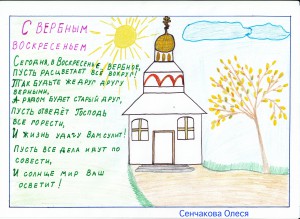 С ВЕРБНЫМ
ВОСКРЕСЕНЬЕМ
СЕГОДНЯ, В ВОСКРЕСЕНЬЕ ВЕРБНОЕ,
ПУСТЬ РАСЦВЕТАЕТ ВСЕ ВОКРУГ!
ТАК БУДЬТЕ ЖЕ ДРУГ ДРУГУ
ВЕРНЫМИ,
А РЯДОМ БУДЕТ СТАРЫЙ ДРУГ,
ПУСТЬ ОТВЕДЁТ ГОСПОДЬ
ВСЕ ГОРЕСТИ,
И ЖИЗНЬ УДАЧУ ВАМ СУЛИТ!
ПУСТЬ ВСЕ ДЕЛА ИДУТ ПО
СОВЕСТИ,
И СОЛНЦЕ МИР ВАШ
ОСВЕТИТ!
Сенчакова Олеся